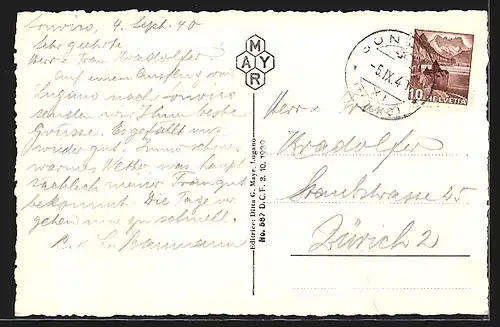 Sonvico, 4. Sept. 40
Sehr geehrte
Herr u. Frau Kradolfer,
Auf einem Ausflug von
Lugano nach Sonvico
senden wir Ihnen beste
Grüsse. Es gefällt uns
wieder gut. Immer schönes,
warmes Wetter, was haupt
sächlich meiner Frau gut
bekommt. Die Tage ver
gehen nur zu schnell.
C. & L. Baumann
MAYR
Editrice: Ditta G. Mayr, Lugano
No. 587 D.C.F. 3. 10. 1929
-5.IX.4
XI
10 HELVETIA
Herr u.
Kradolfer
Staubstrasse 25
Zürich 2